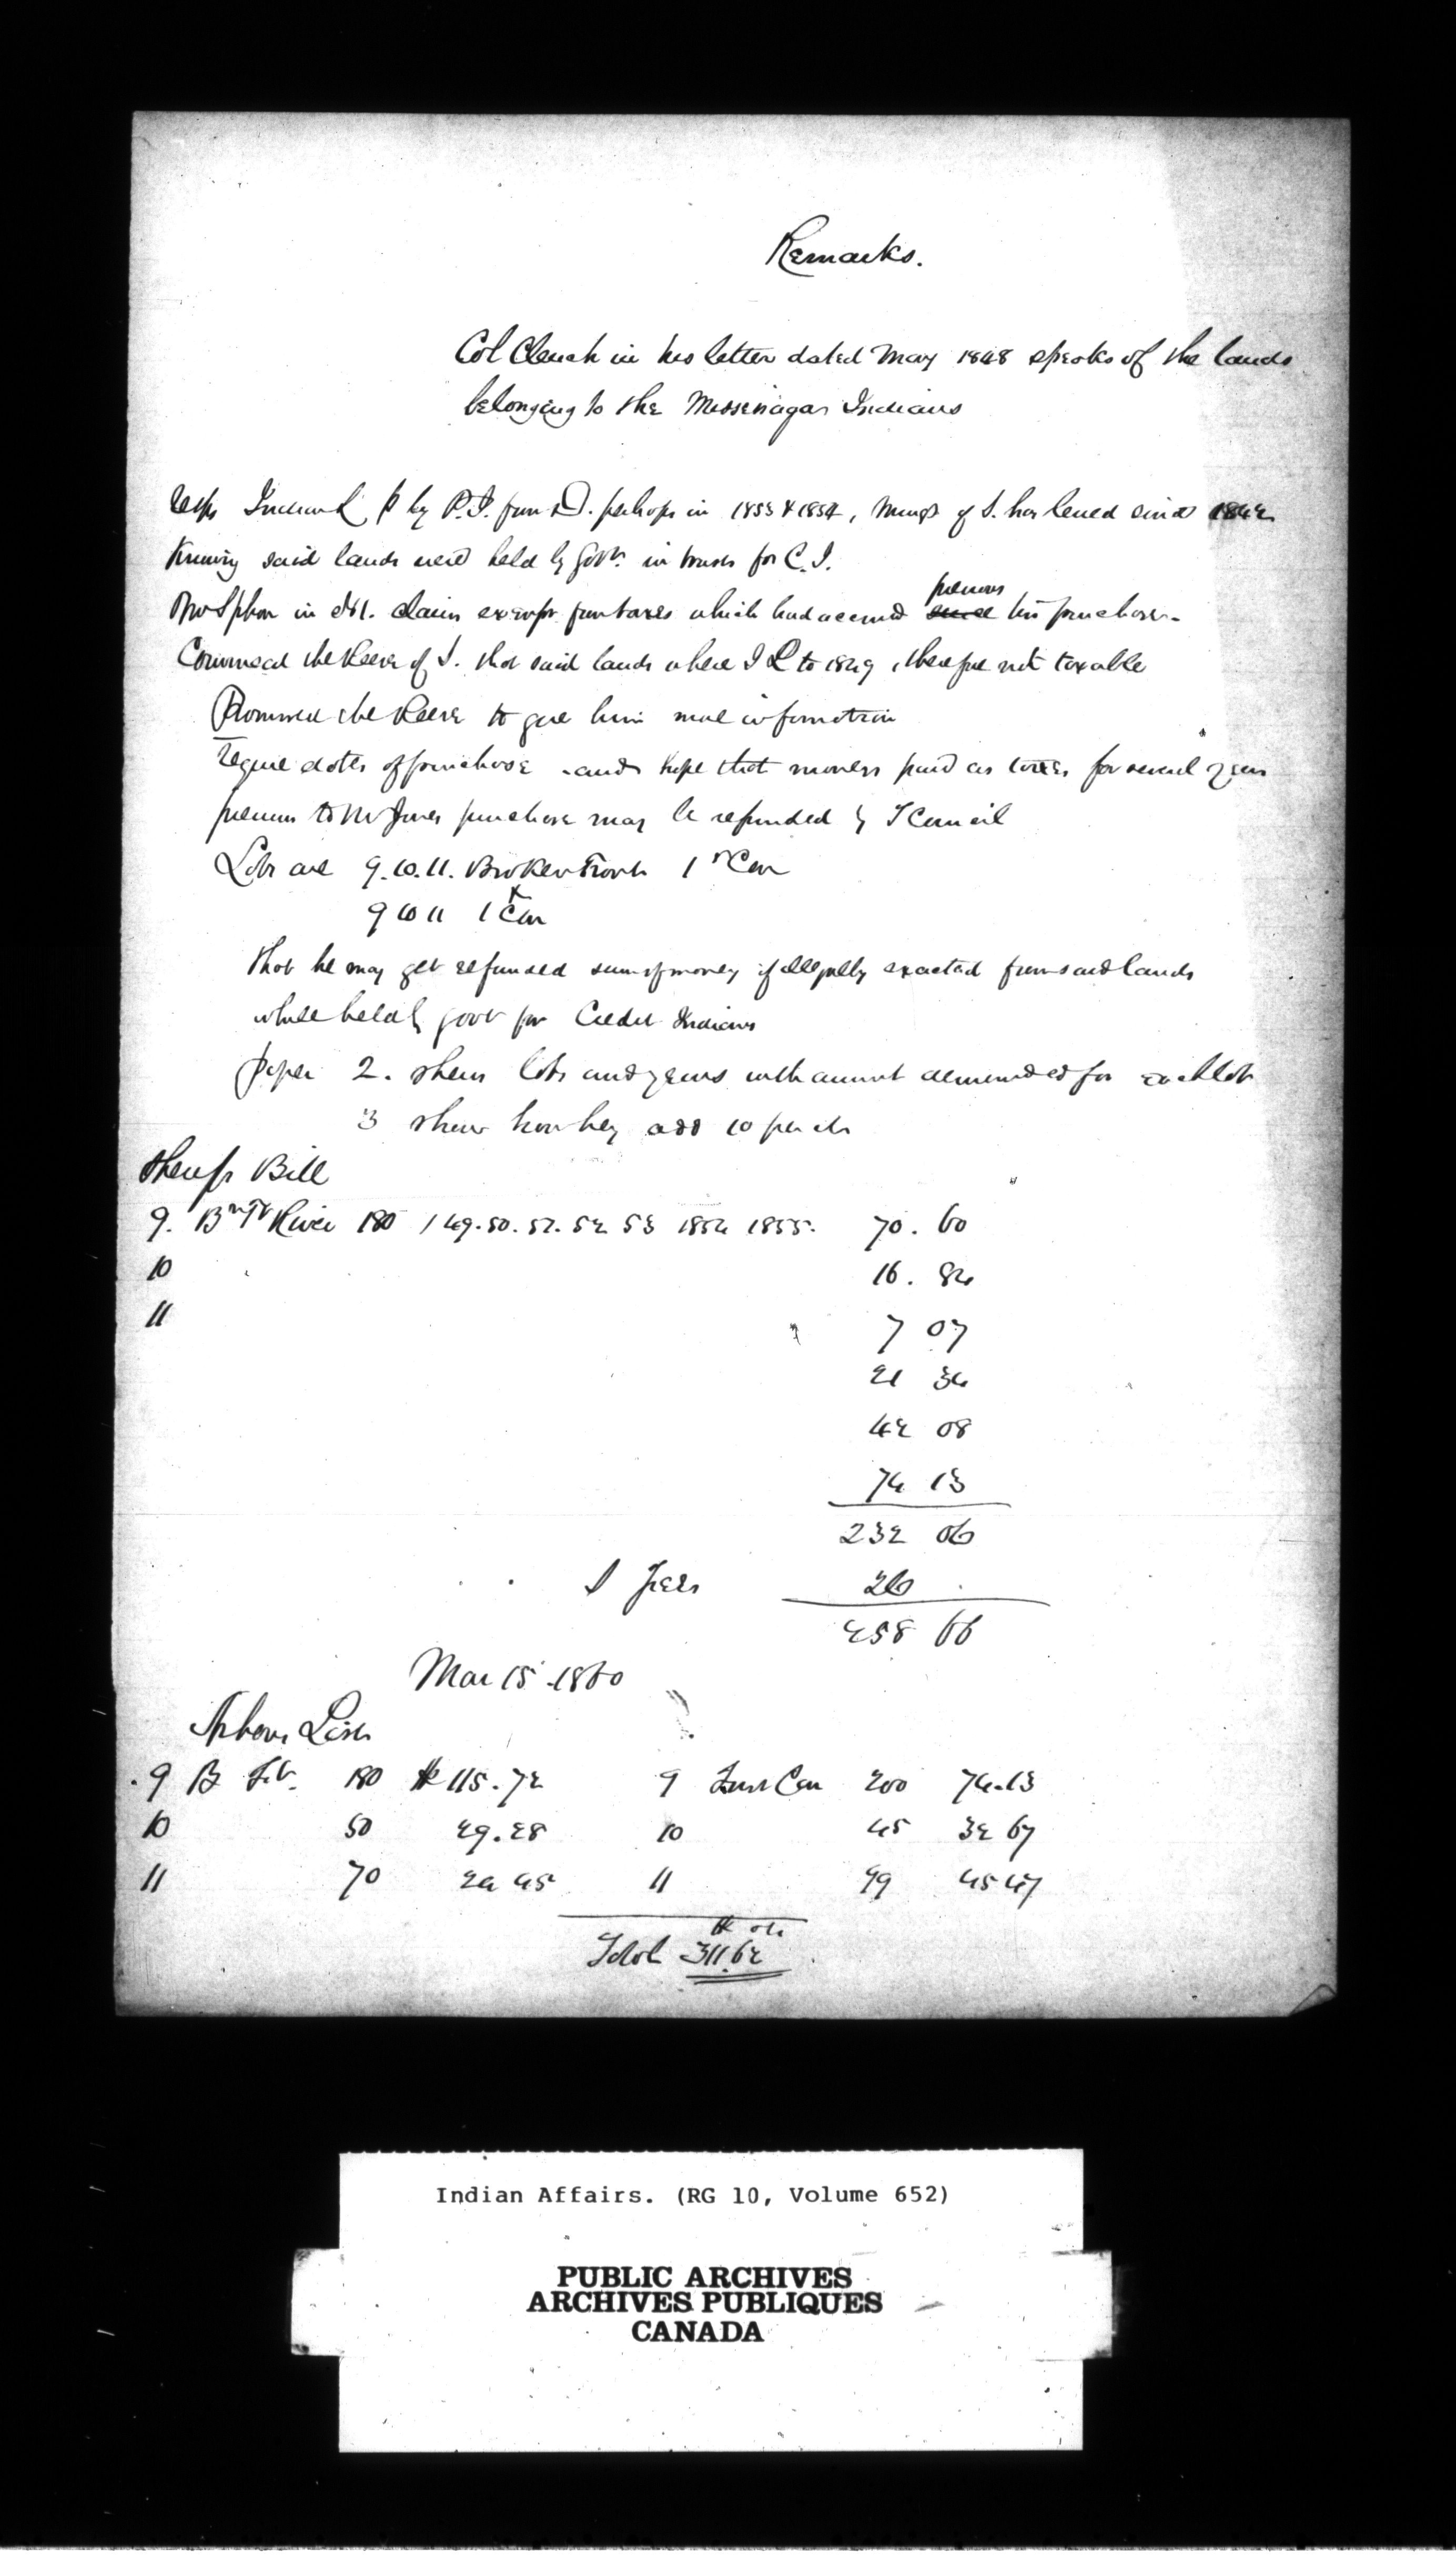 Remarks.
Col Clench in his letter dated May 1848 speaks of the lands
belonging to the Missinagar Indians
by P.J. from D. perhaps in 1853 & 1854, of S. has levied since 1842
Knowing said lands were held by Govt. in trust for C.I.
in claim exempt from taxes which had accrued previous his purchase
the Reeve of S. that said lands where I L to 1849, therefore not taxable
Promised the Reeve to give him more information
require dates of purchase and hope that moneys paid as taxes for several years
previous to Mr Jones purchase may be refunded by T Council
Lots are 9. 10. 11. Broken Front 1st Con
9 10 11 1 Con
that he may get refunded sum of money if illegally exacted from said lands
while held by govt for Credit Indians
Paper 2. shews lots and years with amount demanded for each lot
3 shew how they add 10 per ct
Sheriffs Bill
9. Bn Ft River 180 / 49. 50. 51. 52 53 1854 1855. 70. 60
10 16. 84
11 7 07
21 34
42 08
74 13
232 06
S Fees 26
258 66
Mar 15 1860
Above List
9 B Ft. 180 $ 115.72 9 First Con 200 74.13
10 50 29.28 10 45 32 67
11 70 45 11 99 45 47
$ cts
Total 311.62
Indian Affairs. (RG 10, Volume 652)
PUBLIC ARCHIVES
ARCHIVES PUBLIQUES
CANADA